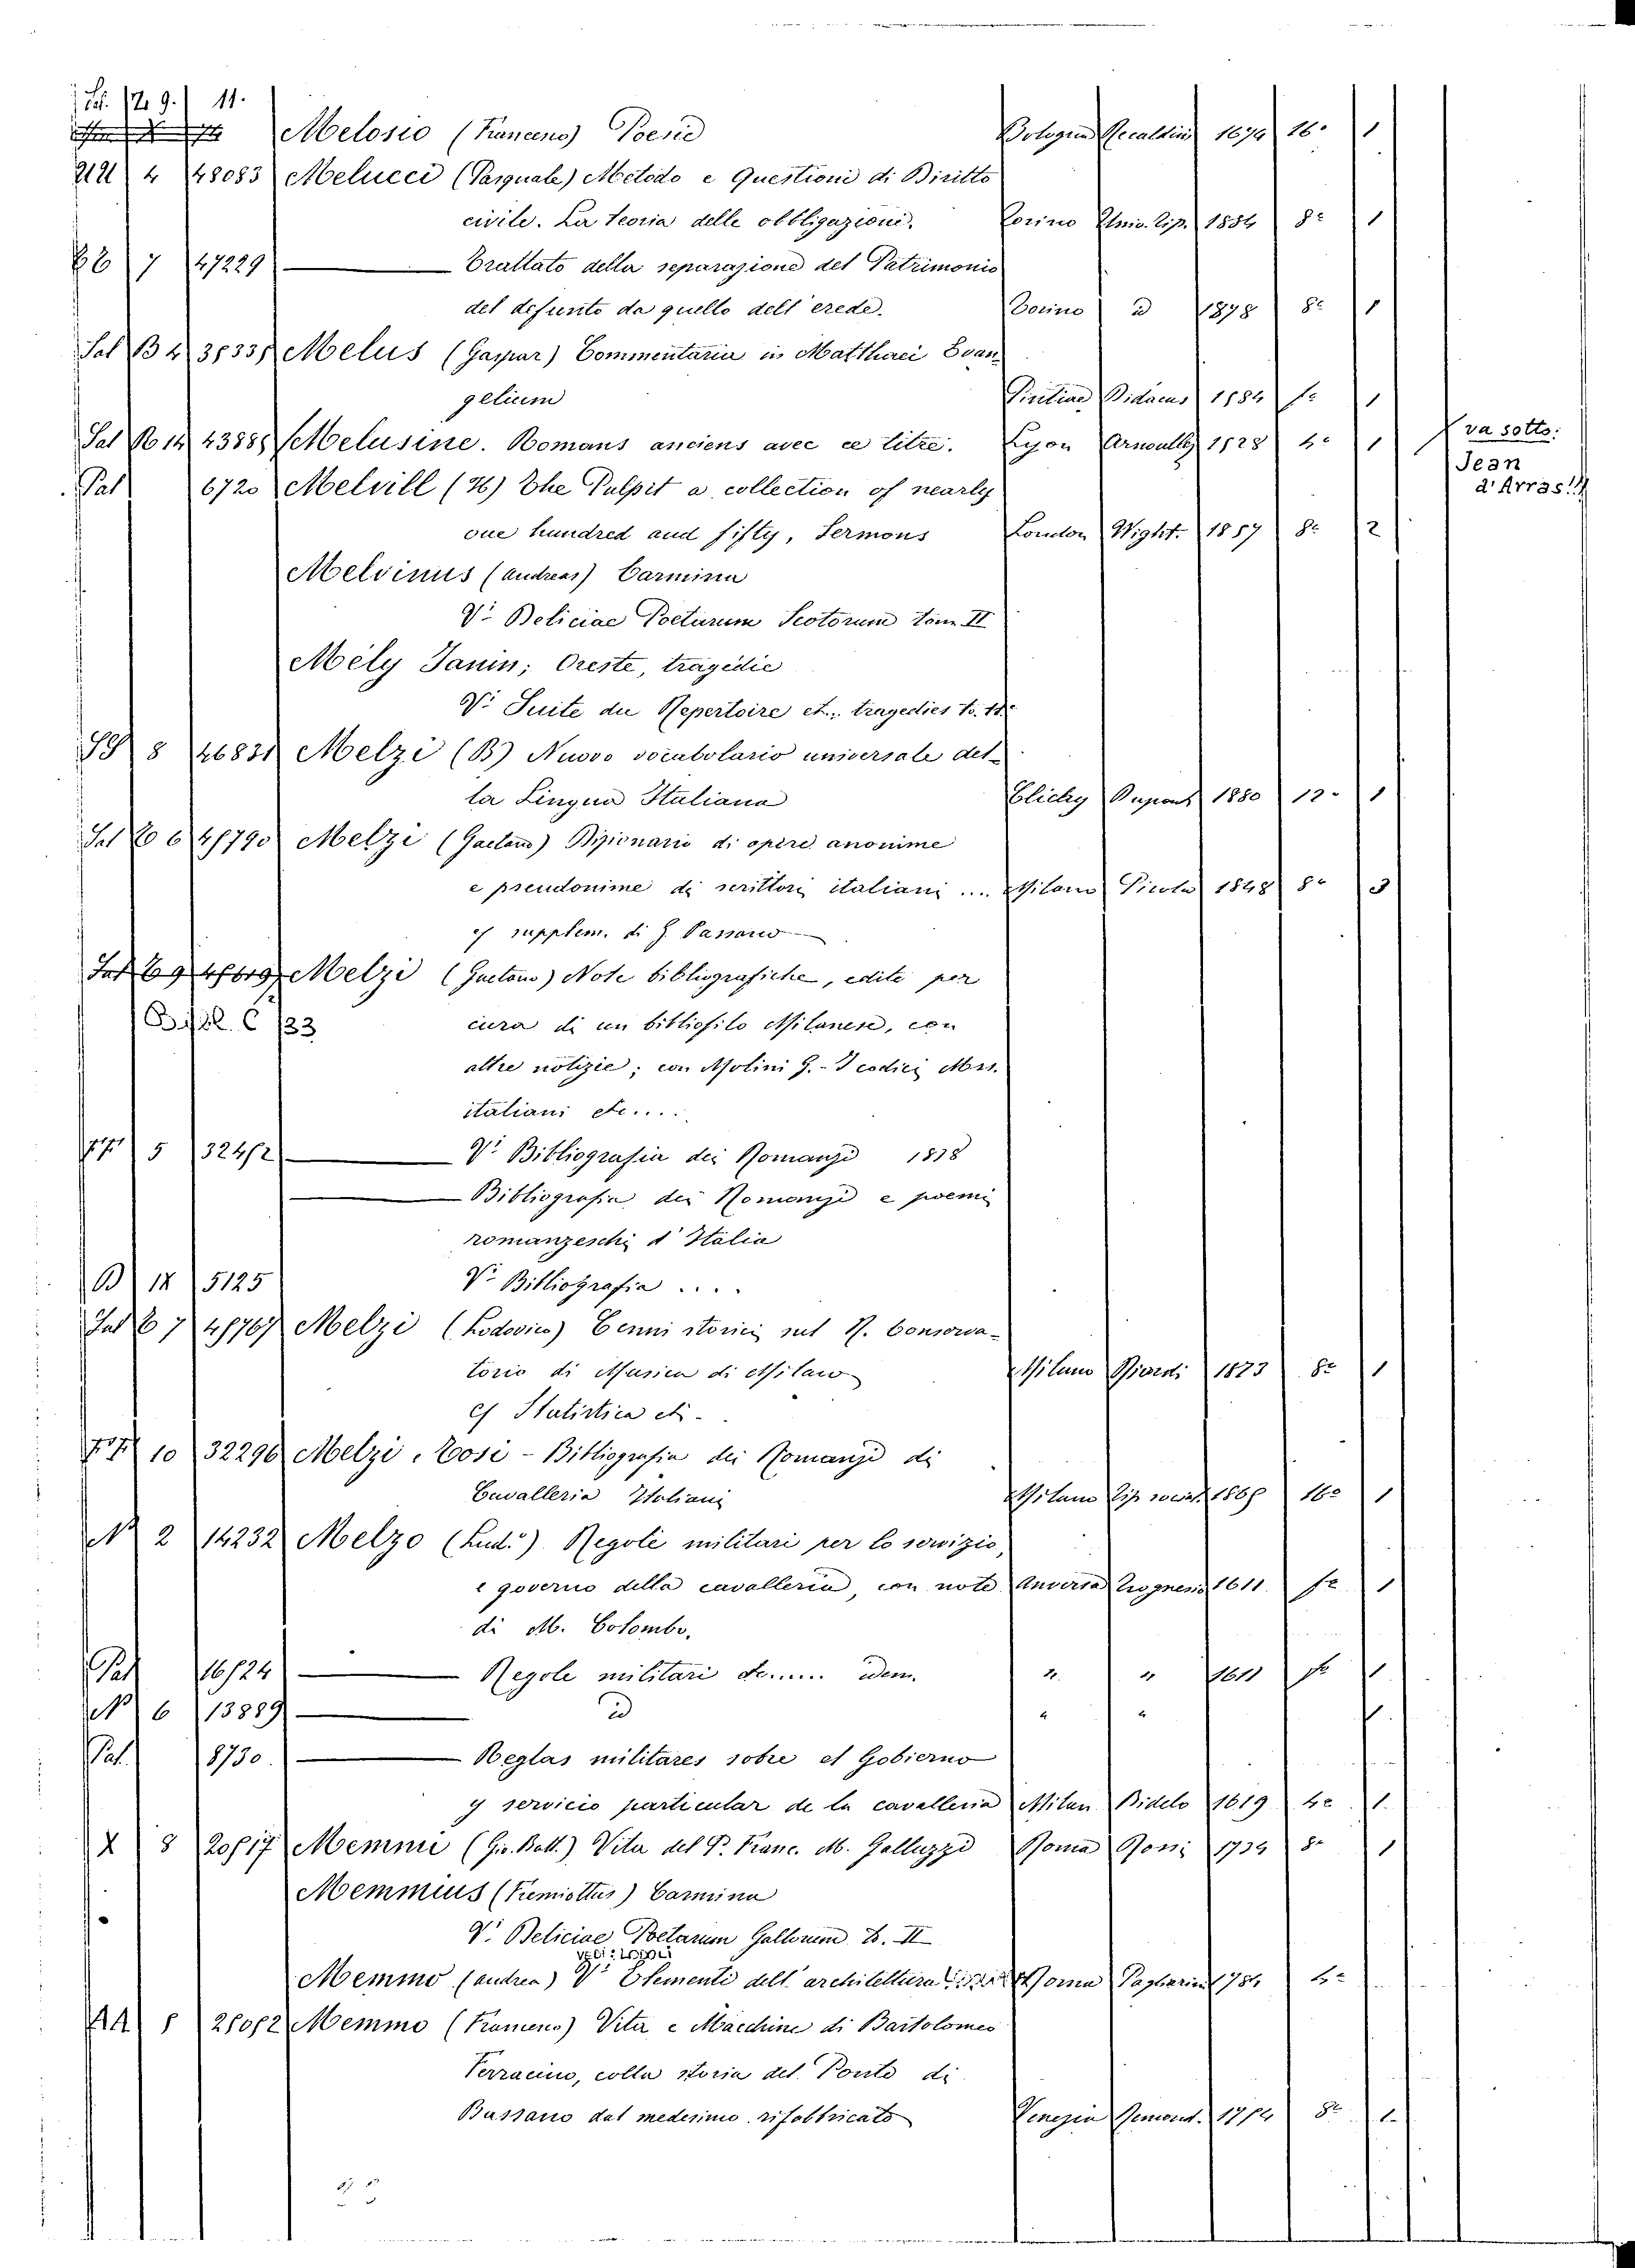 11.
Melosio (Francesco) Poesie Bologna Recaldini 1674 16° 1
4 48083 Melucci (Pasquale) Metodo e Questioni di Diritto
civile. La teoria delle obbligazioni. Torino Unio. Tip. 1884 8° 1
7 47229 Trattato della separazione del Patrimonio
del defunto da quello dell'erede. Torino id 1878 8° 1
Sal B 4 Melus (Gaspar) Commentaria in Matthaei Evan-
gelium Pintiae Didacus 1584 f° 1
Sal 14 Melusine. Romans anciens avec ce titre. Lyon Arnoullet 1528 4° 1
va sotto:
Jean
d'Arras!!
Pal 6720 Melvill (H) The Pulpit a collection of nearly
one hundred and fifty, Sermons London Wight. 1857 8° 2
Melvinus (Andreas) Carmina
V: Deliciae Poetarum Scotorum tom II
Mély Janin; Oreste, tragédie
V: Suite du Repertoire et.. tragedies t. 11°
8 46831 Melzi (B) Nuovo vocabolario universale del-
la Lingua Italiana Clichy Dupont 1880 12° 1
Sal 6 Melzi (Gaetano) Dizionario di opere anonime
e pseudonime di scrittori italiani .... Milano Pirola 1848 8° 3
cf supplem. di G. Passano
Melzi (Gaetano) Note bibliografiche, edite per
C 133 cura di un bibliofilo Milanese, con
altre notizie; con Molini G. - I codici Mss.
italiani etc....
5 V: Bibliografia dei Romanzi 1838
Bibliografia dei Romanzi e poemi
romanzeschi d'Italia
B 5125 V: Bibliografia ....
7 Melzi (Lodovico) Cenni storici sul R. Conserva-
torio di Musica di Milano Milano Ricordi 1873 8° 1
cf Statistica etc.
10 32296 Melzi e Tosi - Bibliografia dei Romanzi di
Cavalleria Italiani Milano Tip. 16° 1
2 14232 Melzo (Lud.°) Regole militari per lo servizio,
e governo della cavalleria, con note Anversa Trognesio 1611 f° 1
di M. Colombo.
Pal Regole militari etc..... idem. " " 1611 f° 1
6 13889 id " " 1
Pal. 8730. Reglas militares sobre el Gobierno
y servicio particular de la cavalleria Milan Bidelo 1619 4° 1
X 8 20517 Memmi (Gio. Batt.) Vita del P. Franc. M. Galluzzi Roma Rossi 1734 8° 1
Memmius (Fremiottus) Carmina
V: Deliciae Poetarum Gallorum t. II
vedi: Lodoli
Memmo (Andrea) V: Elementi dell'architettura Roma Pagliarini 4°
AA Memmo (Francesco) Vita e Macchine di Bartolomeo
Ferracino, colla storia del Ponte di
Bassano dal medesimo rifabbricato Venezia Remond. 8° 1